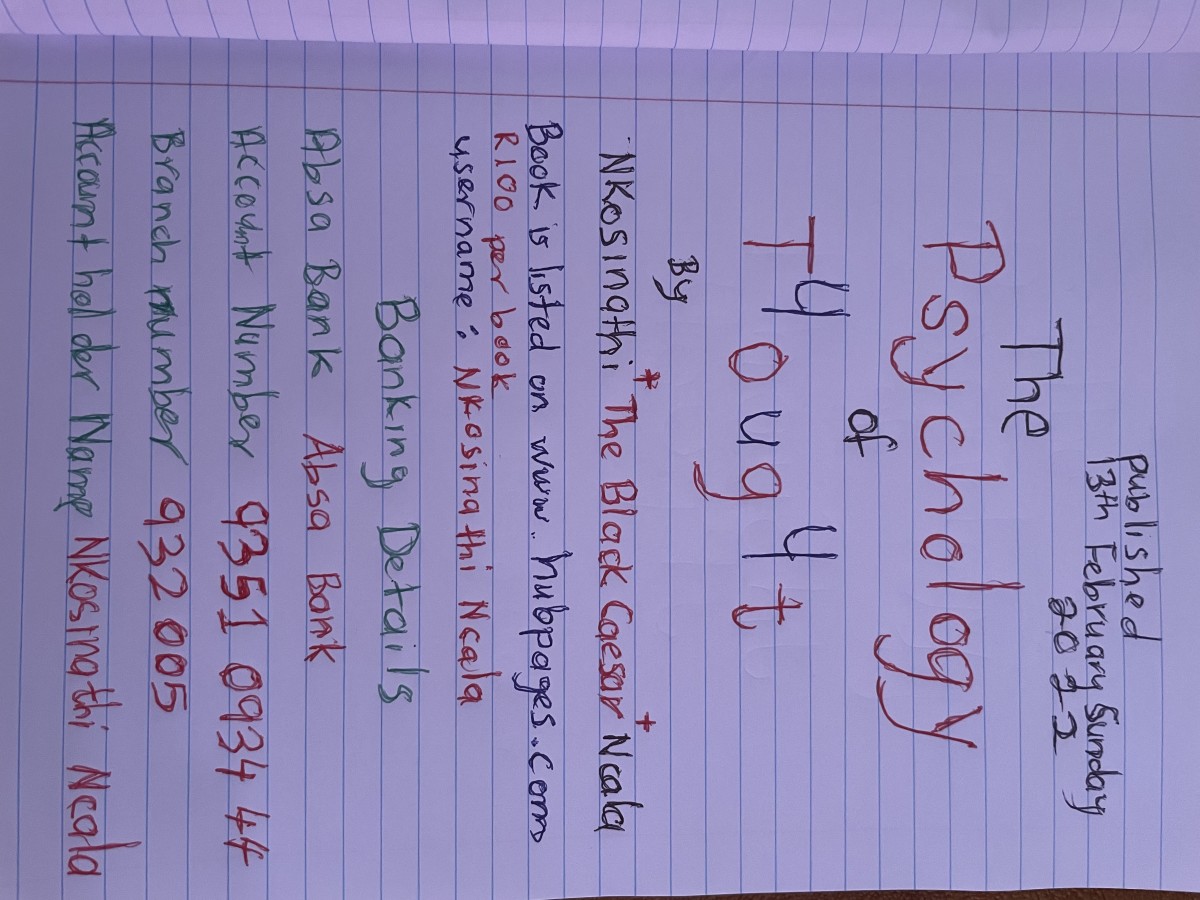 published
13th February Sunday
2022
The
Psychology
of
T4oug4t
By
NKosinathi "The Black Caesar" Ncala
Book is listed on www.hubpages.com
R100 per book
username: NKosinathi Ncala
Banking Details
Absa Bank Absa Bank
Account Number 93510934 44
Branch number 932 005
Account holder Name NKosinathi Ncala